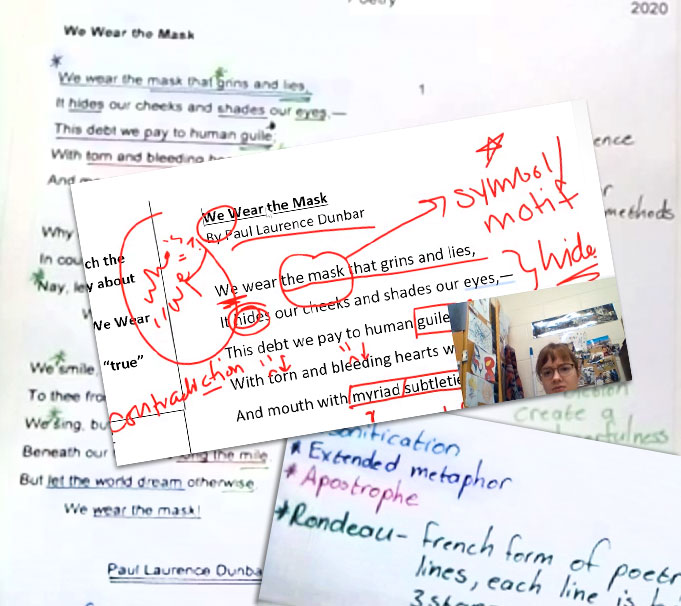 2020
We Wear the Mask
We wear the mask that grins and lies,
1
It hides our cheeks and shades our eyes,—
This debt we pay to human guile;
With torn and bleeding
And
ence
methods
Why
In cou
Nay, le
We smile,
To thee fro
We sing, bu
Beneath our
the mile
But let the world dream otherwise,
We wear the mask!
Paul Laurence Dunba
ch the
y about
We Wear
"true"
who is
"we"
= ?
contradiction
We Wear the Mask
By Paul Laurence Dunbar
We wear the mask that grins and lies,
It hides our cheeks and shades our eyes,—
This debt we pay to human guile
With torn and bleeding hearts w
And mouth with myriad subtletie
symbol/
motif
hide
create a
erfulness
* Extended metaphor
* Apostrophe
* Rondeau- french form of poetr
lines, each line is